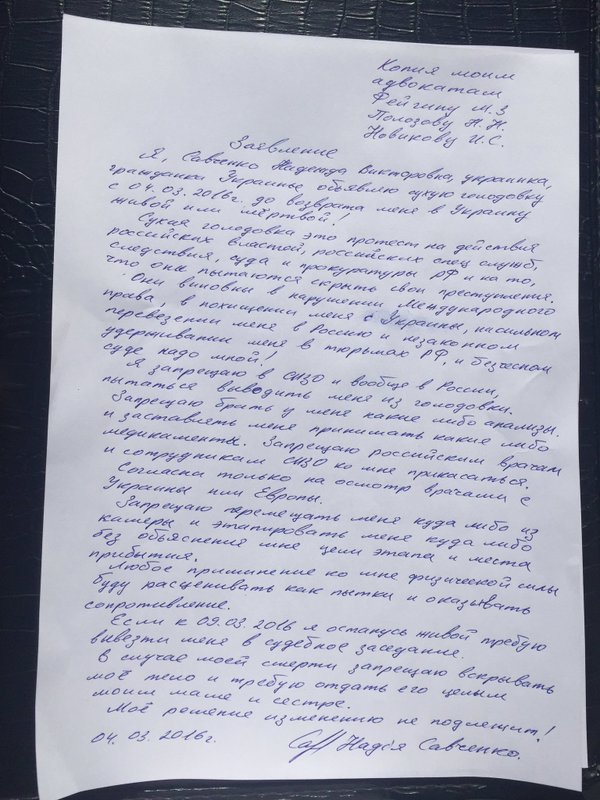 Копия моим
адвокатам
Фейгину М.З
Полозову Н.Н.
Новикову И.С.
Заявление
Я, Савченко Надежда Викторовна, украинка,
гражданка Украины объявляю сухую голодовку
с 04.03.2016г. до возврата меня в Украину
живой или мёртвой!
Сухая голодовка это протест на действия
российских властей, российских спец служб,
следствия, суда и прокуратуры РФ и на то,
что они пытаются скрыть свои преступления.
Они виновны в нарушении Международного
права, в похищении меня с Украины, насильном
перевезении меня в Россию и незаконном
удерживании меня в тюрьмах РФ, и безчесном
суде надо мной!
Я запрещаю в СИЗО и вообще в России,
пытаться выводить меня из голодовки.
Запрещаю брать у меня какие либо анализы
и заставлять меня принимать какие либо
медикаменты. Запрещаю российским врачам
и сотрудникам СИЗО ко мне прикасаться.
Согласна только на осмотр врачами с
Украины или Европы.
Запрещаю перемещать меня куда либо из
камеры и этапировать меня куда либо
без объяснения мне цели этапа и места
прибытия.
Любое применение ко мне физической силы
буду расценивать как пытки и оказывать
сопротивление.
Если к 09.03.2016 я останусь живой требую
вывезти меня в судебное заседание.
В случае моей смерти запрещаю вскрывать
моё тело и требую отдать его целым
моим маме и сестре.
Моё решение изменению не подлежит!
04.03.2016г. Надія Савченко.